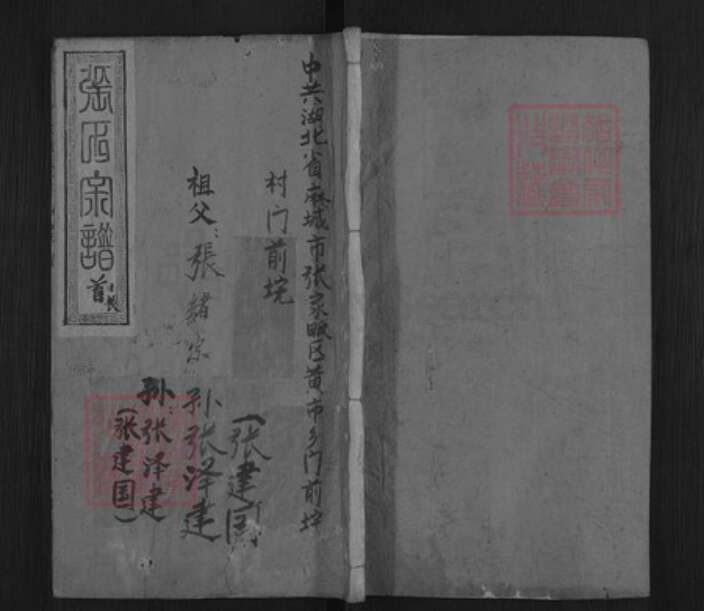 中共湖北省麻城市张家畈区黄市乡门前垸
村门前垸
祖父：張緒宗 孙张泽建
（张建国）
孙：张泽建
（张建国）
張氏宗譜
首